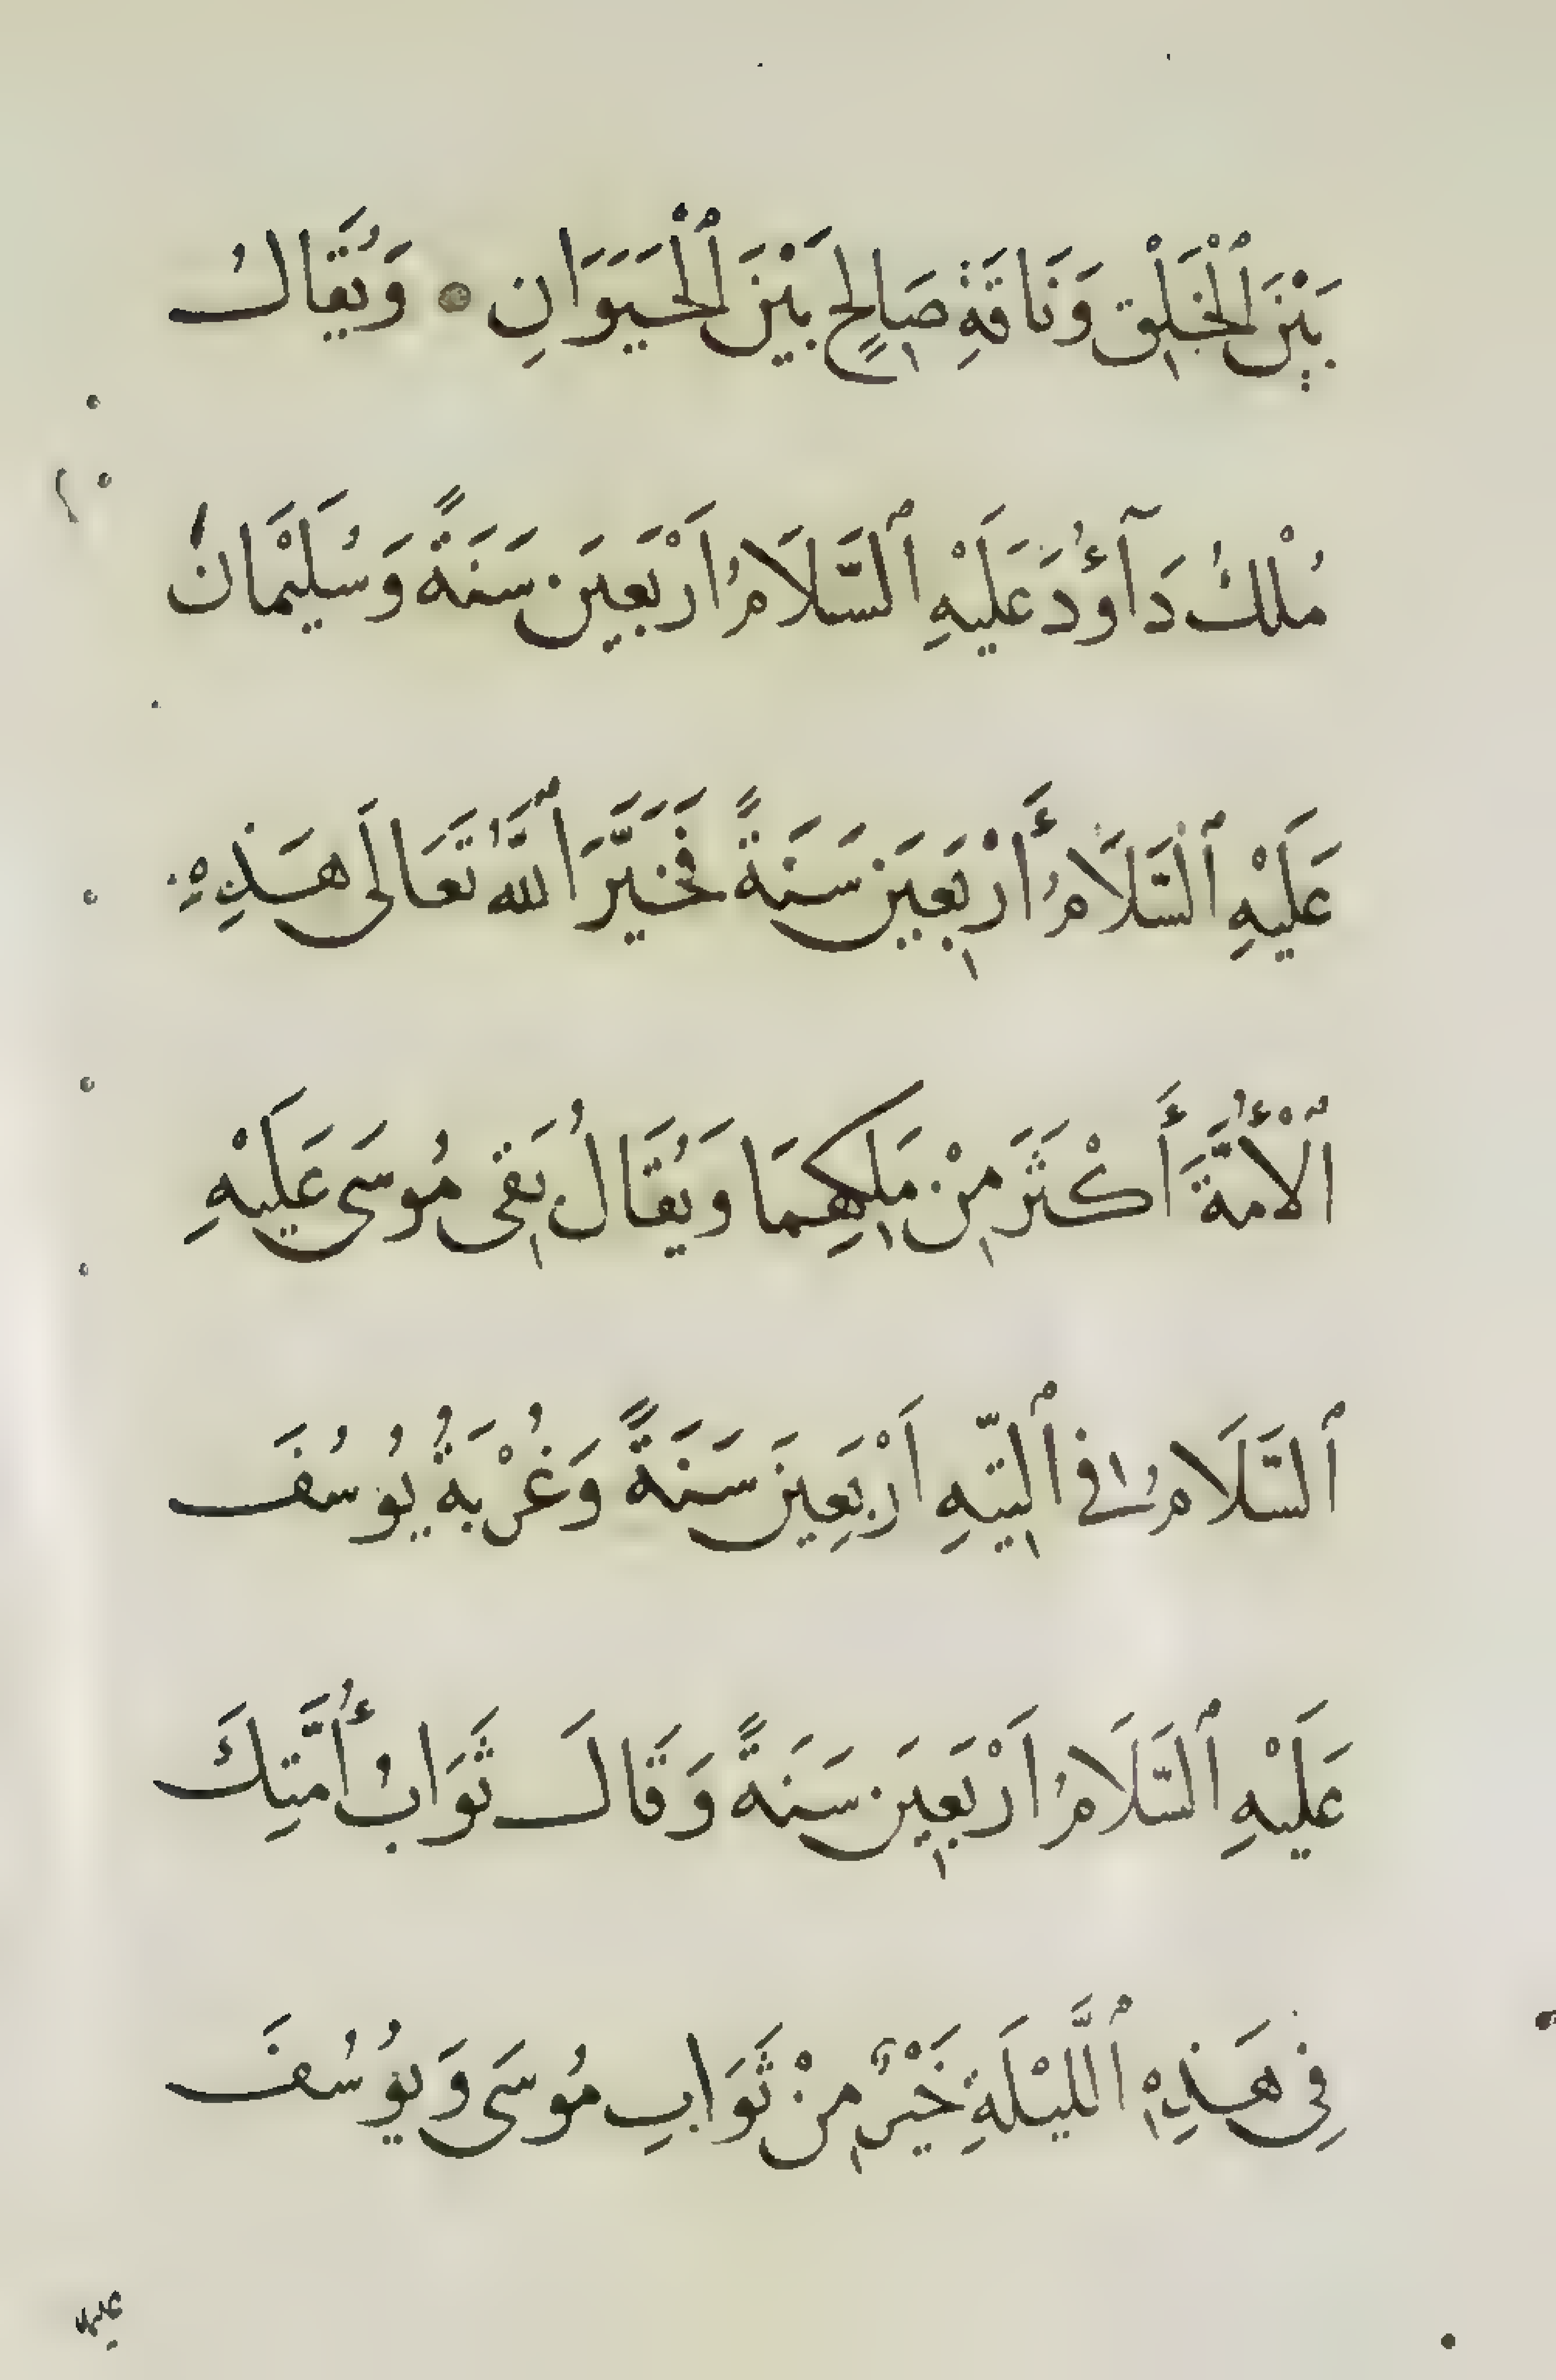 بَيْنَ ٱلْخَلْقِ وَنَاقَةِ صَالِحٍ بَيْنَ ٱلْحَيَوَانِ وَيُقَالُ
مُلْكُ دَآؤُدَ عَلَيْهِ ٱلسَّلَامُ اَرْبَعِينَ سَنَةً وَسُلَيْمَانَ
عَلَيْهِ ٱلسَّلَامُ أَرْبَعِينَ سَنَةً فَخَيَّرَ ٱللّٰهُ تَعَالَى هَذِهِ
ٱلْأُمَّةَ أَكْثَرَ مِنْ مَلِكِهِمَا وَيُقَالُ بَقِى مُوسَى عَلَيْهِ
ٱلسَّلَامُ فِى ٱلتِّيهِ اَرْبَعِينَ سَنَةً وَغُرْبَةُ يُوسُفَ
عَلَيْهِ ٱلسَّلَامُ اَرْبَعِينَ سَنَةً وَقَالَ ثَوَابُ أُمَّتِكَ
فِى هَذِهِ ٱللَّيْلَةِ خَيْرٌ مِنْ ثَوَابِ مُوسَى وَيُوسُفَ
عليهما